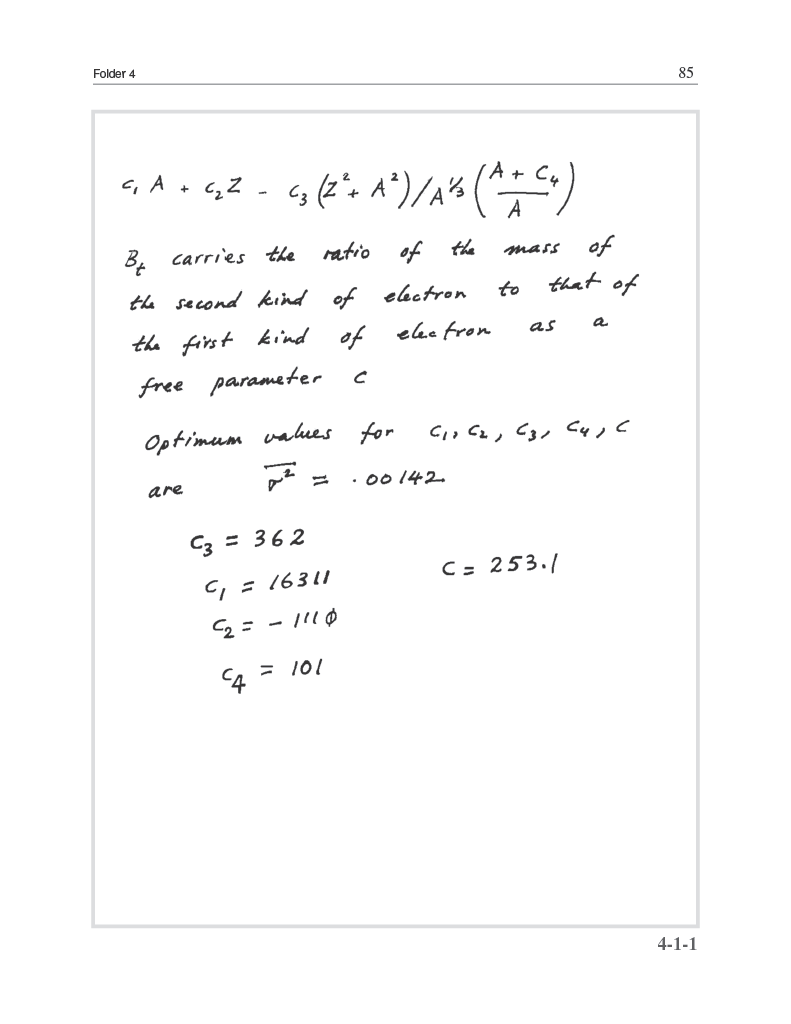 Folder 4
85
c₁ A + c₂ Z - c₃ (Z² + A²) / A^⅓ ((A + C₄) / A)
B_t carries the ratio of the mass of
the second kind of electron to that of
the first kind of electron as a
free parameter C
Optimum values for C₁, C₂, C₃, C₄, C
are r̅²̅ = .00142
C₃ = 362
C₁ = 16311
C = 253.1
C₂ = - 1110
C₄ = 101
4-1-1